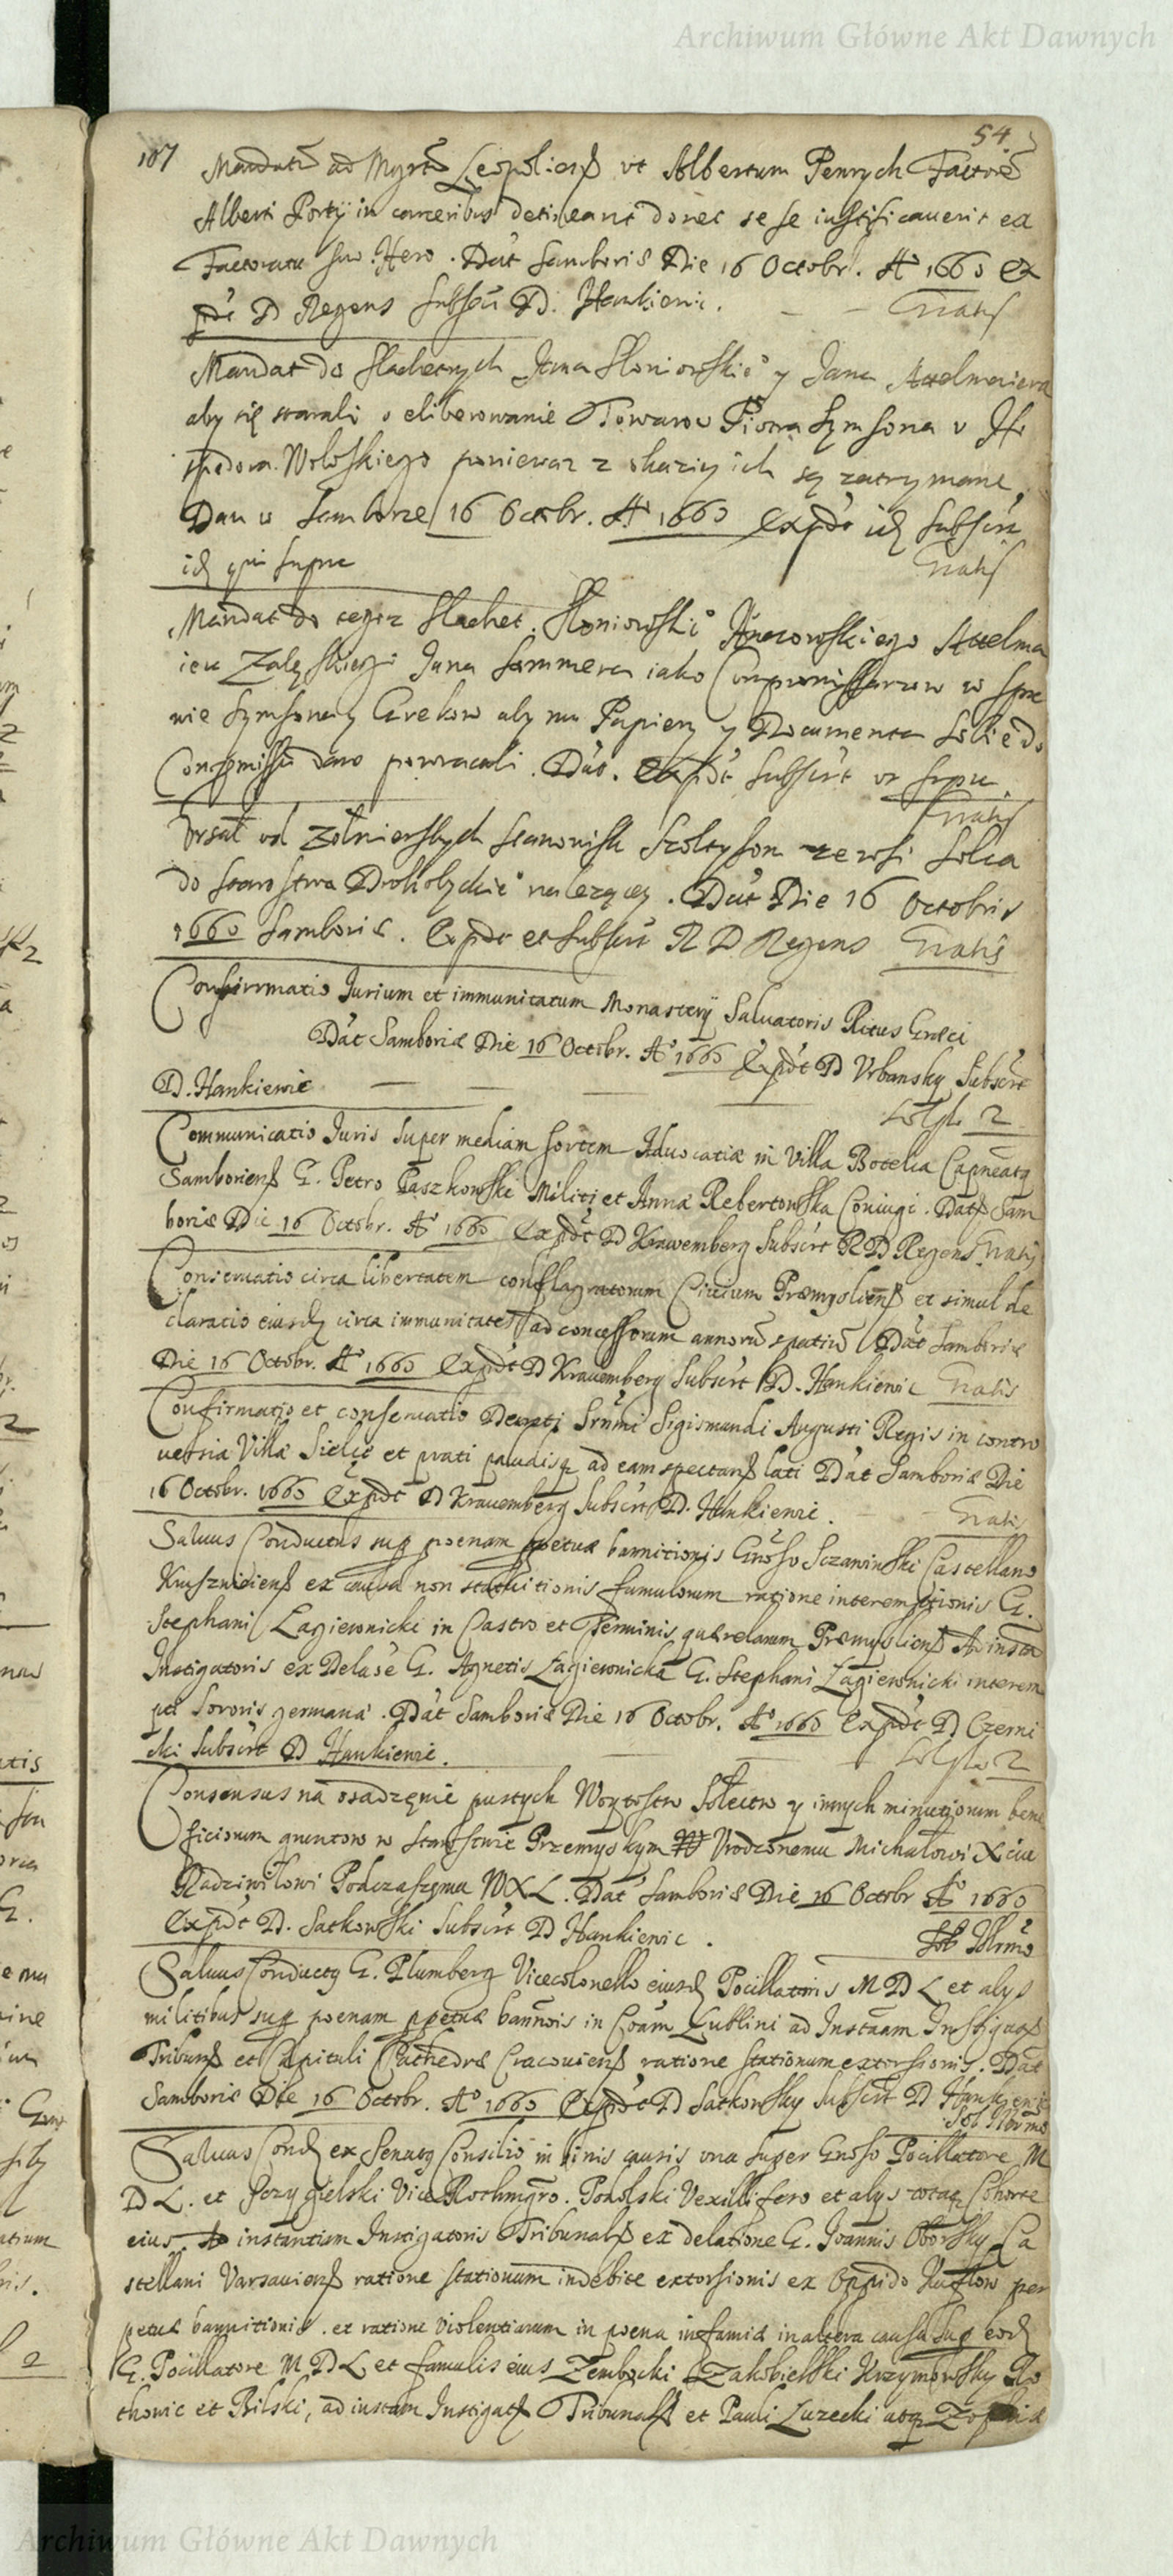 Archiwum Główne Akt Dawnych
54
107 Mandatū ad Mgrtū Leopoliens ut Albertum Penrych Factorē
Alberti Portÿ in carceribus detineant donec se se iustificauerit ex
Factoratu suo Hero. Dat Samboris Die 16 Octobr. Aº 1660 Ex
pdt D Regens subscr D. Hankiewic. Gratis
Mandat do Slachetnych Jana Słoniowskieº y Jana Attelmaiera
aby się starali o eliberowanie Towarow Piotra Symsona u Ho
spodora Wołoskiego poniewaz z okaziy ich są zatrzymane,
Dan w Samborze 16 Octobr. Aº 1660 Expdt id subscr
id qui supra Gratis
Mandat do tegoz Slachet. Słoniowskieº Attelma
iera Zaleskiego Jana Sommera iako Compromissarzow w spra
wie Symsona y Grekow aby mu Papiery y Documenta sobie do
Compromissu dane powracali. Dat. Expdt subscrt ut supra.
Gratis
Vrsał od Zołnierskych Stanowisk Scoltyson ze wsi Solca
do Starostwa Drohobyckieº należącey. Dat Die 16 Octobris
1660 Samboris. Expdt et subscr R D Regens Gratis
Confirmatio Jurium et immunitatum Monasterÿ Saluatoris Ritus Græci
Dat Samboriæ Die 16 Octobr. Aº 1660 Expdt D Vrbansky Subscrt
D. Hankiewic
2
Communicatio Juris super mediam sortem Aduocatiæ in Villa Botelca Capneatq
Samboriens G. Petro Paszkowski Militi et Annæ Rebertowska Coniugi. Dat Sam
boriæ Die 16 Octobr. Aº 1660 Expdt D Krawemberg Subscrt R D Regens Gratis
Conseruatio circa libertatem conflagratorum Ciuium Præmysliens et simul de
claratio eiusd circa immunitatē ad concessorum annorū spatiū Dat Samboriæ
Die 16 Octobr. Aº 1660 Expdt D Krauemberg Subscrt D. Hankiewic Gratis
Confirmatio et conseruatio Decreti Srnmi Sigismundi Augusti Regis in contro
uersia Villæ Sielec et prati paludisq ad eam spectans lati Dat Samboriæ Die
16 Octobr. 1660 Expdt D Krauemberg Subscrt D. Hankiewic. Gratis
Saluus Conductus sup poenam ppetuæ bannitionis Gnoso Sczawinski Castellano
Kruszwiciens ex causa non statuitionis famulorum ratione interemptionis G.
Stephani Łagiewnicki in Castro et Terminis quærelarum Præmysliens Ad insta
Instigatoris ex Delaõe G. Agnetis Łagiewnicka G. Stephani Łagiewnicki interem
pti Sororis germanæ. Dat Samboriæ Die 16 Octobr. Aº 1660 Expdt D Czerni
cki Subscrt D Hankiewic.
2
Consensus na osadzęnie pustych Woytostw Sołectw y innych minutiorum bene
ficiorum gruntow w Starostwie Przemyskym Vrodzonemu Michałowi Xciu
Radziwiłowi Podczaszemu W X L. Dat Samboriæ Die 16 Octobr Aº 1660
Expdt D. Satkowski Subscrt D Hankiewic.
Saluus Conductq G. Plumberg Vicecolonello eiusd Pocillatoris M D L et alys
militibus sup poenam ppetuæ bannois in Coam Lublini ad Instaam Instigat
Tribuns et Capituli Cathedræ Cracouiens ratione stationum extorsionis. Dat
Samboriæ Die 16 Octobr. Aº 1660 Expdt D Satkowsky Subscrt D Hankiewic
Saluus Cond ex Senatq Consilio in binis causis una super Gnoso Pocillatore M
D L. et Przygielski Vice Rochmgro. Pokolski Vexillifero et alys totaq Cohorte
eius. Ad instantiam Instigatoris Tribunals ex delatione G. Joannis Oborsky Ca
stellani Varsauiens ratione stationum indebite extorsionis ex Oppido per
petuæ bannitionis. et ratione violentiarum in poena infamiæ in altera causa sup eod
G. Pocillatore M D L et famulis eius Zembocki Zakobielski Krzymowsky Ro
thowic et Bilski, ad instam Instigat Tribunals et Pauli Luzecki atq Zophiæ
Archiwum Główne Akt Dawnych